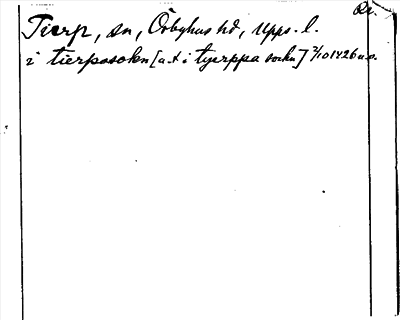 Tierp, sn, Örbyhus hd, Upps. l.
i tierpasokn [u.t. i tyerppa sockn] 2/10 1426 u.o.